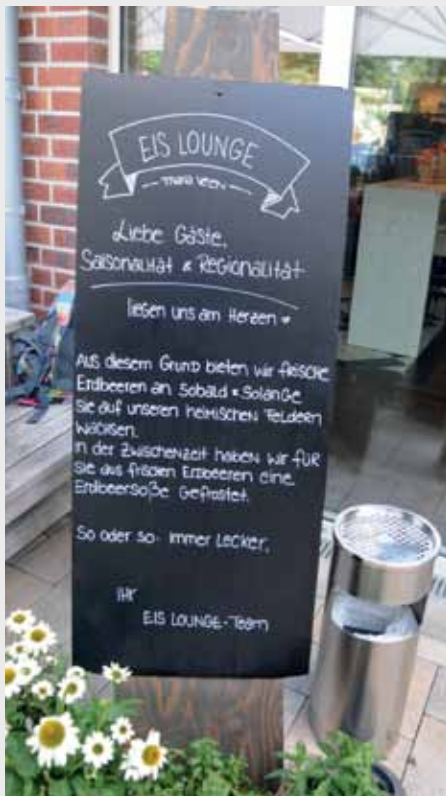 EIS LOUNGE
Liebe Gäste,
Saisonalität & Regionalität
liegen uns am Herzen
Aus diesem Grund bieten wir frische
Erdbeeren an sobald & solange
sie auf unseren heimischen Feldern
wachsen.
In der Zwischenzeit haben wir für
Sie aus frischen Erdbeeren eine
Erdbeersoße gefrostet.
So oder so- immer lecker.
Ihr
EIS LOUNGE-Team